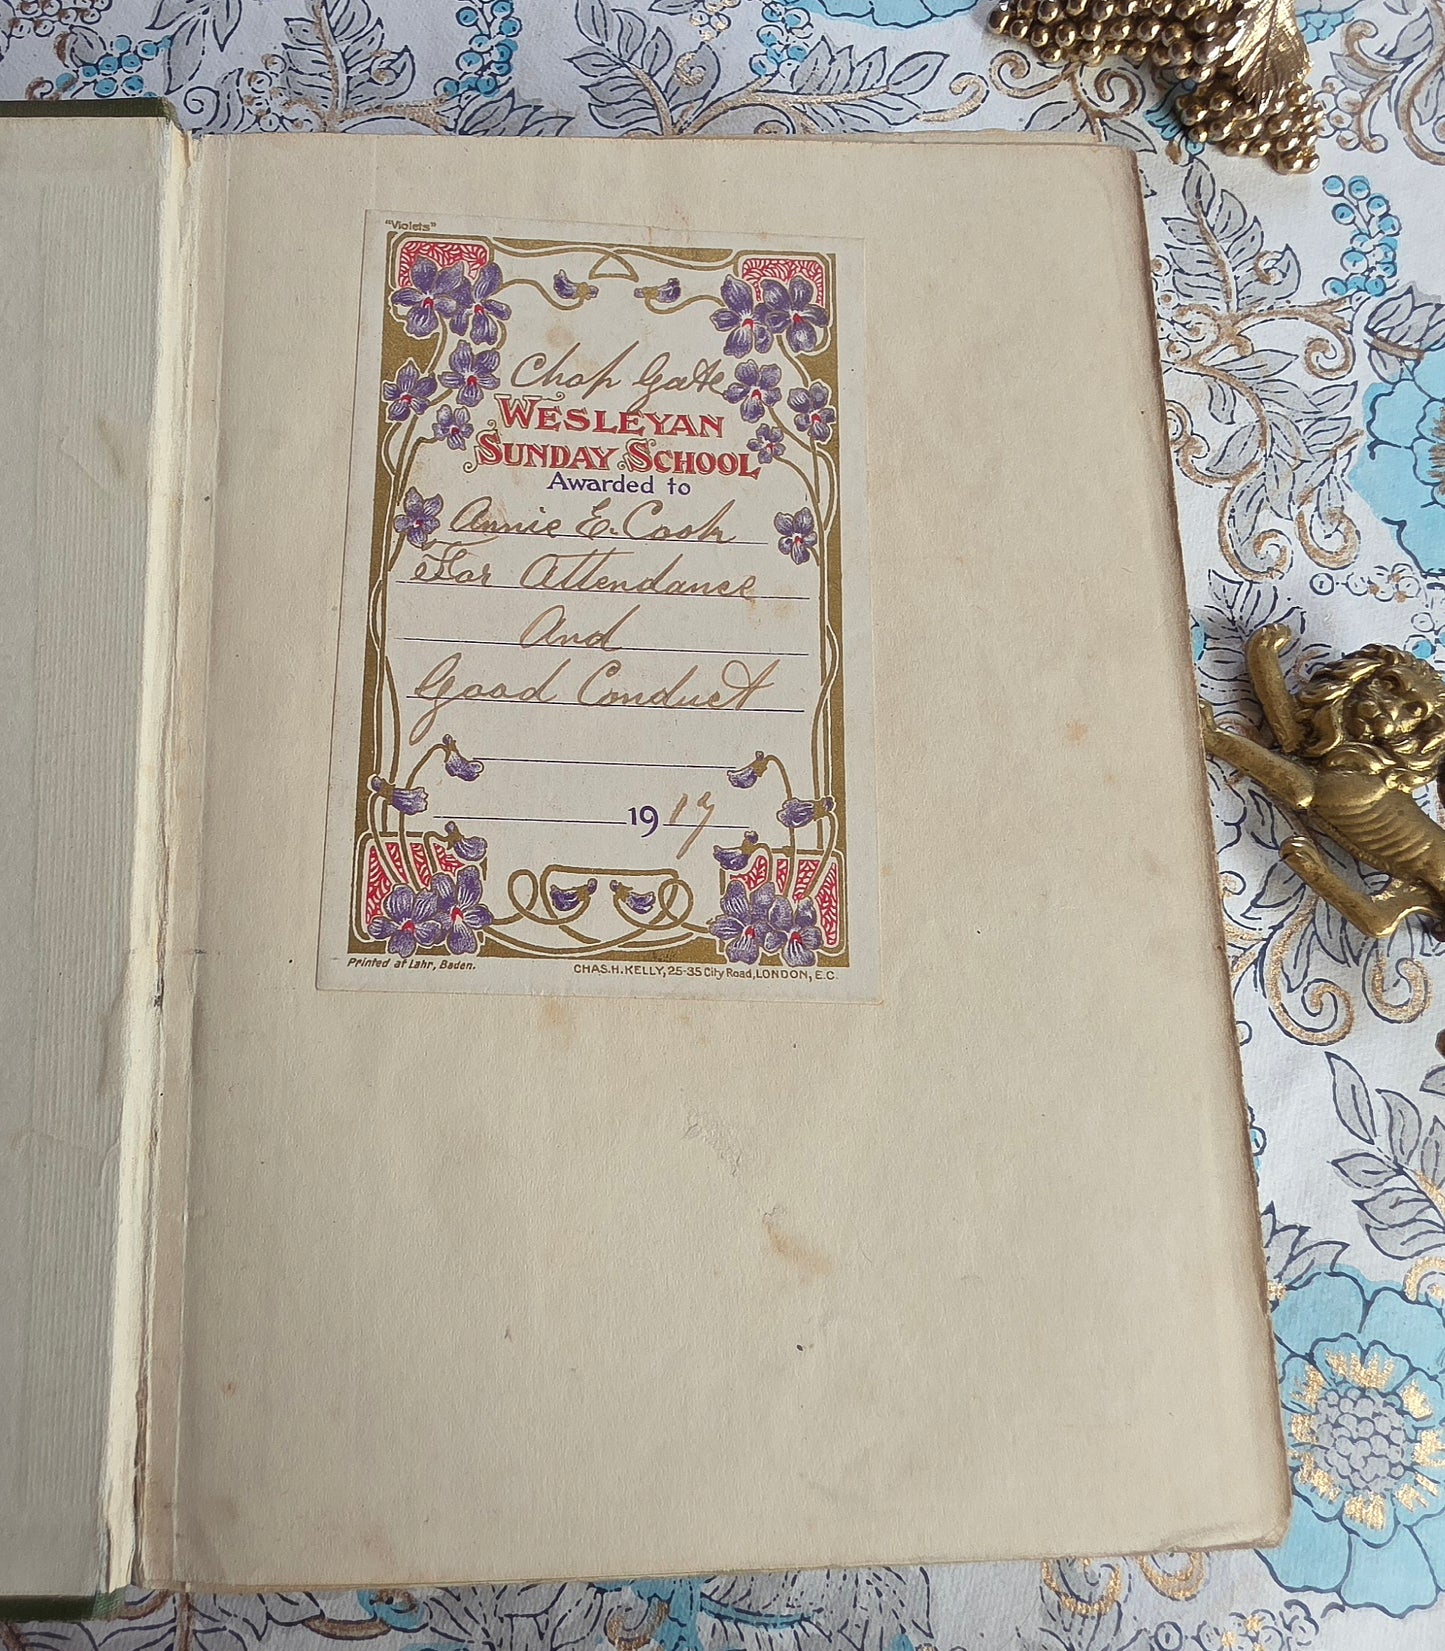 "Violets"
Chop Gate
WESLEYAN
SUNDAY SCHOOL
Awarded to
Annie E. Cook
For Attendance
And
Good Conduct
1917
Printed at Lahr, Baden.
CHAS. H. KELLY, 25-35 City Road, LONDON, E.C.